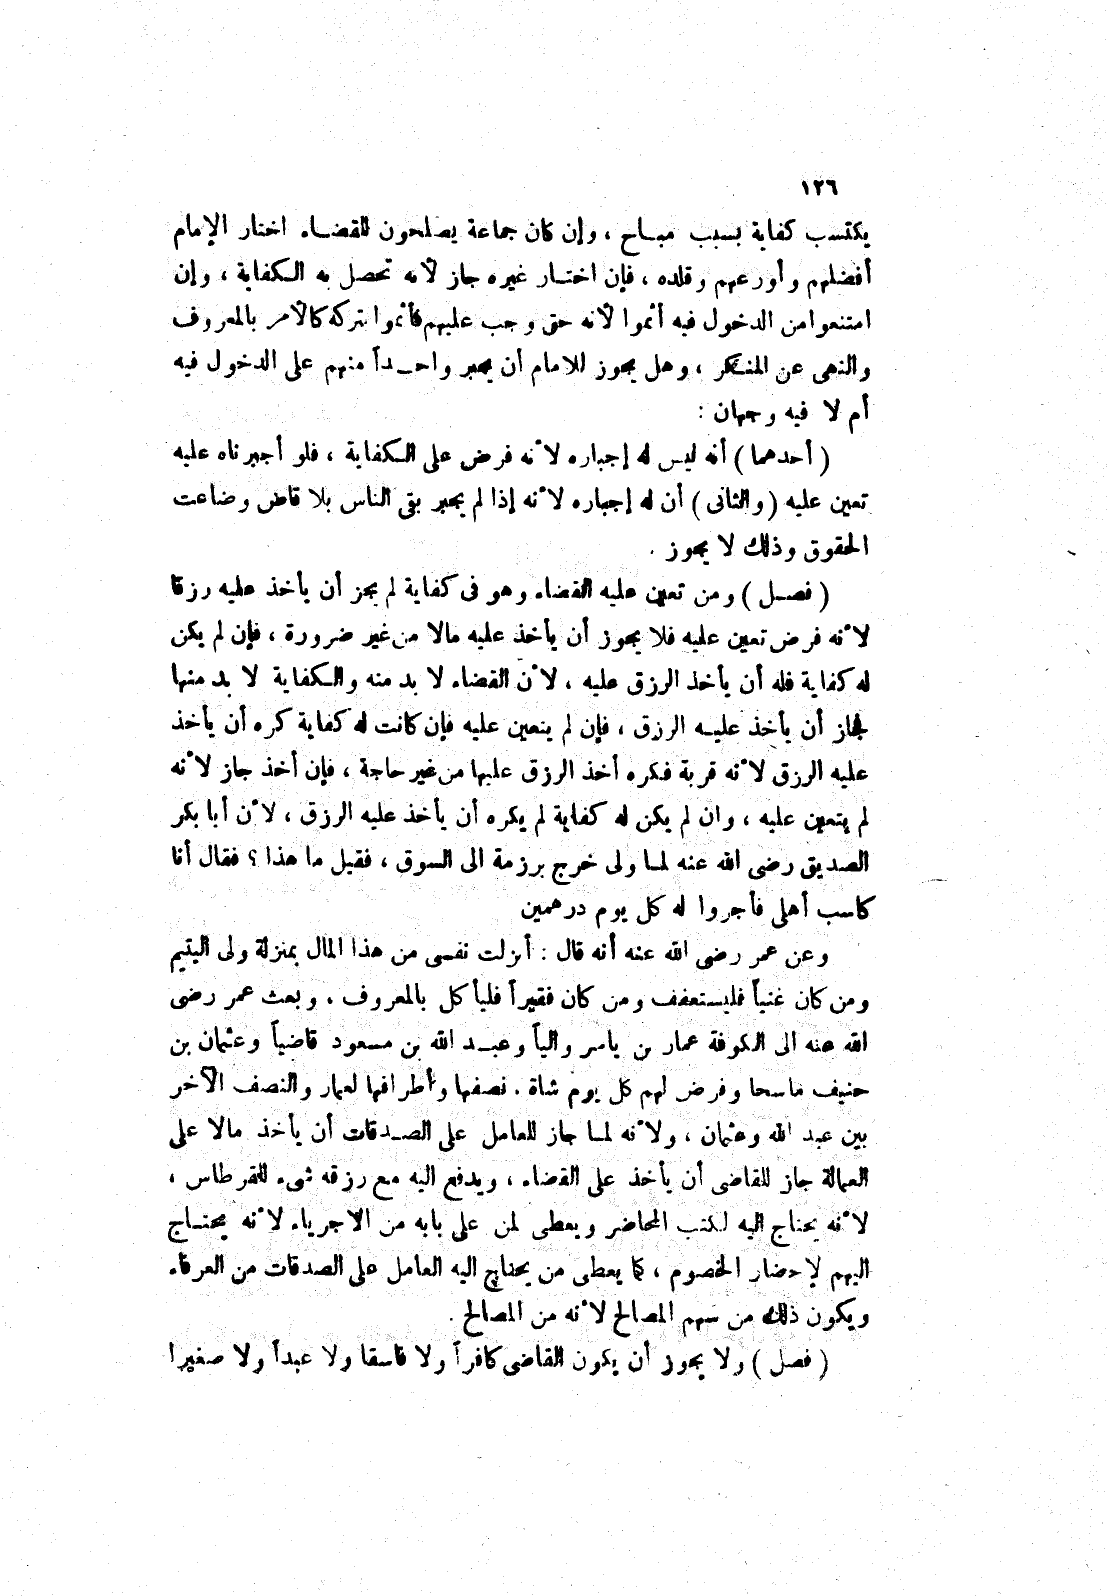 ١٢٦
يكتسب كفاية بسبب مباح ، وإن كان جماعة يصلحون للقضاء اختار الإمام
أفضلهم وأورعهم وقلده ، فإن اختار غيره جاز لأنه تحصل به الكفاية ، وإن
امتنعوا من الدخول فيه أثموا لأنه حق وجب عليهم فأثموا بتركه كالأمر بالمعروف
والنهى عن المنكر ، وهل يجوز للامام أن يجبر واحداً منهم على الدخول فيه
أم لا فيه وجهان :
( أحدهما ) أنه ليس له إجباره لأنه فرض على الكفاية ، فلو أجبرناه عليه
تعين عليه ( والثانى ) أن له إجباره لأنه إذا لم يجبر بقى الناس بلا قاض وضاعت
الحقوق وذلك لا يجوز .
( فصل ) ومن تعين عليه القضاء وهو فى كفاية لم يجز أن يأخذ عليه رزقا
لأنه فرض تعين عليه فلا يجوز أن يأخذ عليه مالا من غير ضرورة ، فإن لم يكن
له كفاية فله أن يأخذ الرزق عليه ، لأن القضاء لا بد منه والكفاية لا بد منها
فجاز أن يأخذ عليه الرزق ، فإن لم يتعين عليه فإن كانت له كفاية كره أن يأخذ
عليه الرزق لأنه قربة فكره أخذ الرزق عليها من غير حاجة ، فإن أخذ جاز لأنه
لم يتعين عليه ، وان لم يكن له كفاية لم يكره أن يأخذ عليه الرزق ، لأن أبا بكر
الصديق رضى الله عنه لما ولى خرج برزمة الى السوق ، فقيل ما هذا ؟ فقال أنا
كاسب أهلى فأجروا له كل يوم درهمين
وعن عمر رضى الله عنه أنه قال : أنزلت نفسى من هذا المال بمنزلة ولى اليتيم
ومن كان غنياً فليستعفف ومن كان فقيراً فليأكل بالمعروف ، وبعث عمر رضى
الله عنه الى الكوفة عمار بن ياسر والياً وعبد الله بن مسعود قاضياً وعثمان بن
حنيف ماسحا وفرض لهم كل يوم شاة . نصفها وأطرافها لعمار والنصف الآخر
بين عبد الله وعثمان ، ولأنه لما جاز للعامل على الصدقات أن يأخذ مالا على
العمالة جاز للقاضى أن يأخذ على القضاء ، ويدفع اليه مع رزقه شىء للقرطاس ،
لأنه يحتاج اليه لكتب المحاضر ويعطى لمن على بابه من الاجرياء لأنه يحتاج
اليهم لإحضار الخصوم ، كما يعطى من يحتاج اليه العامل على الصدقات من العرفاء
ويكون ذلك من سهم المصالح لأنه من المصالح .
( فصل ) ولا يجوز أن يكون القاضى كافراً ولا فاسقا ولا عبداً ولا صغيرا